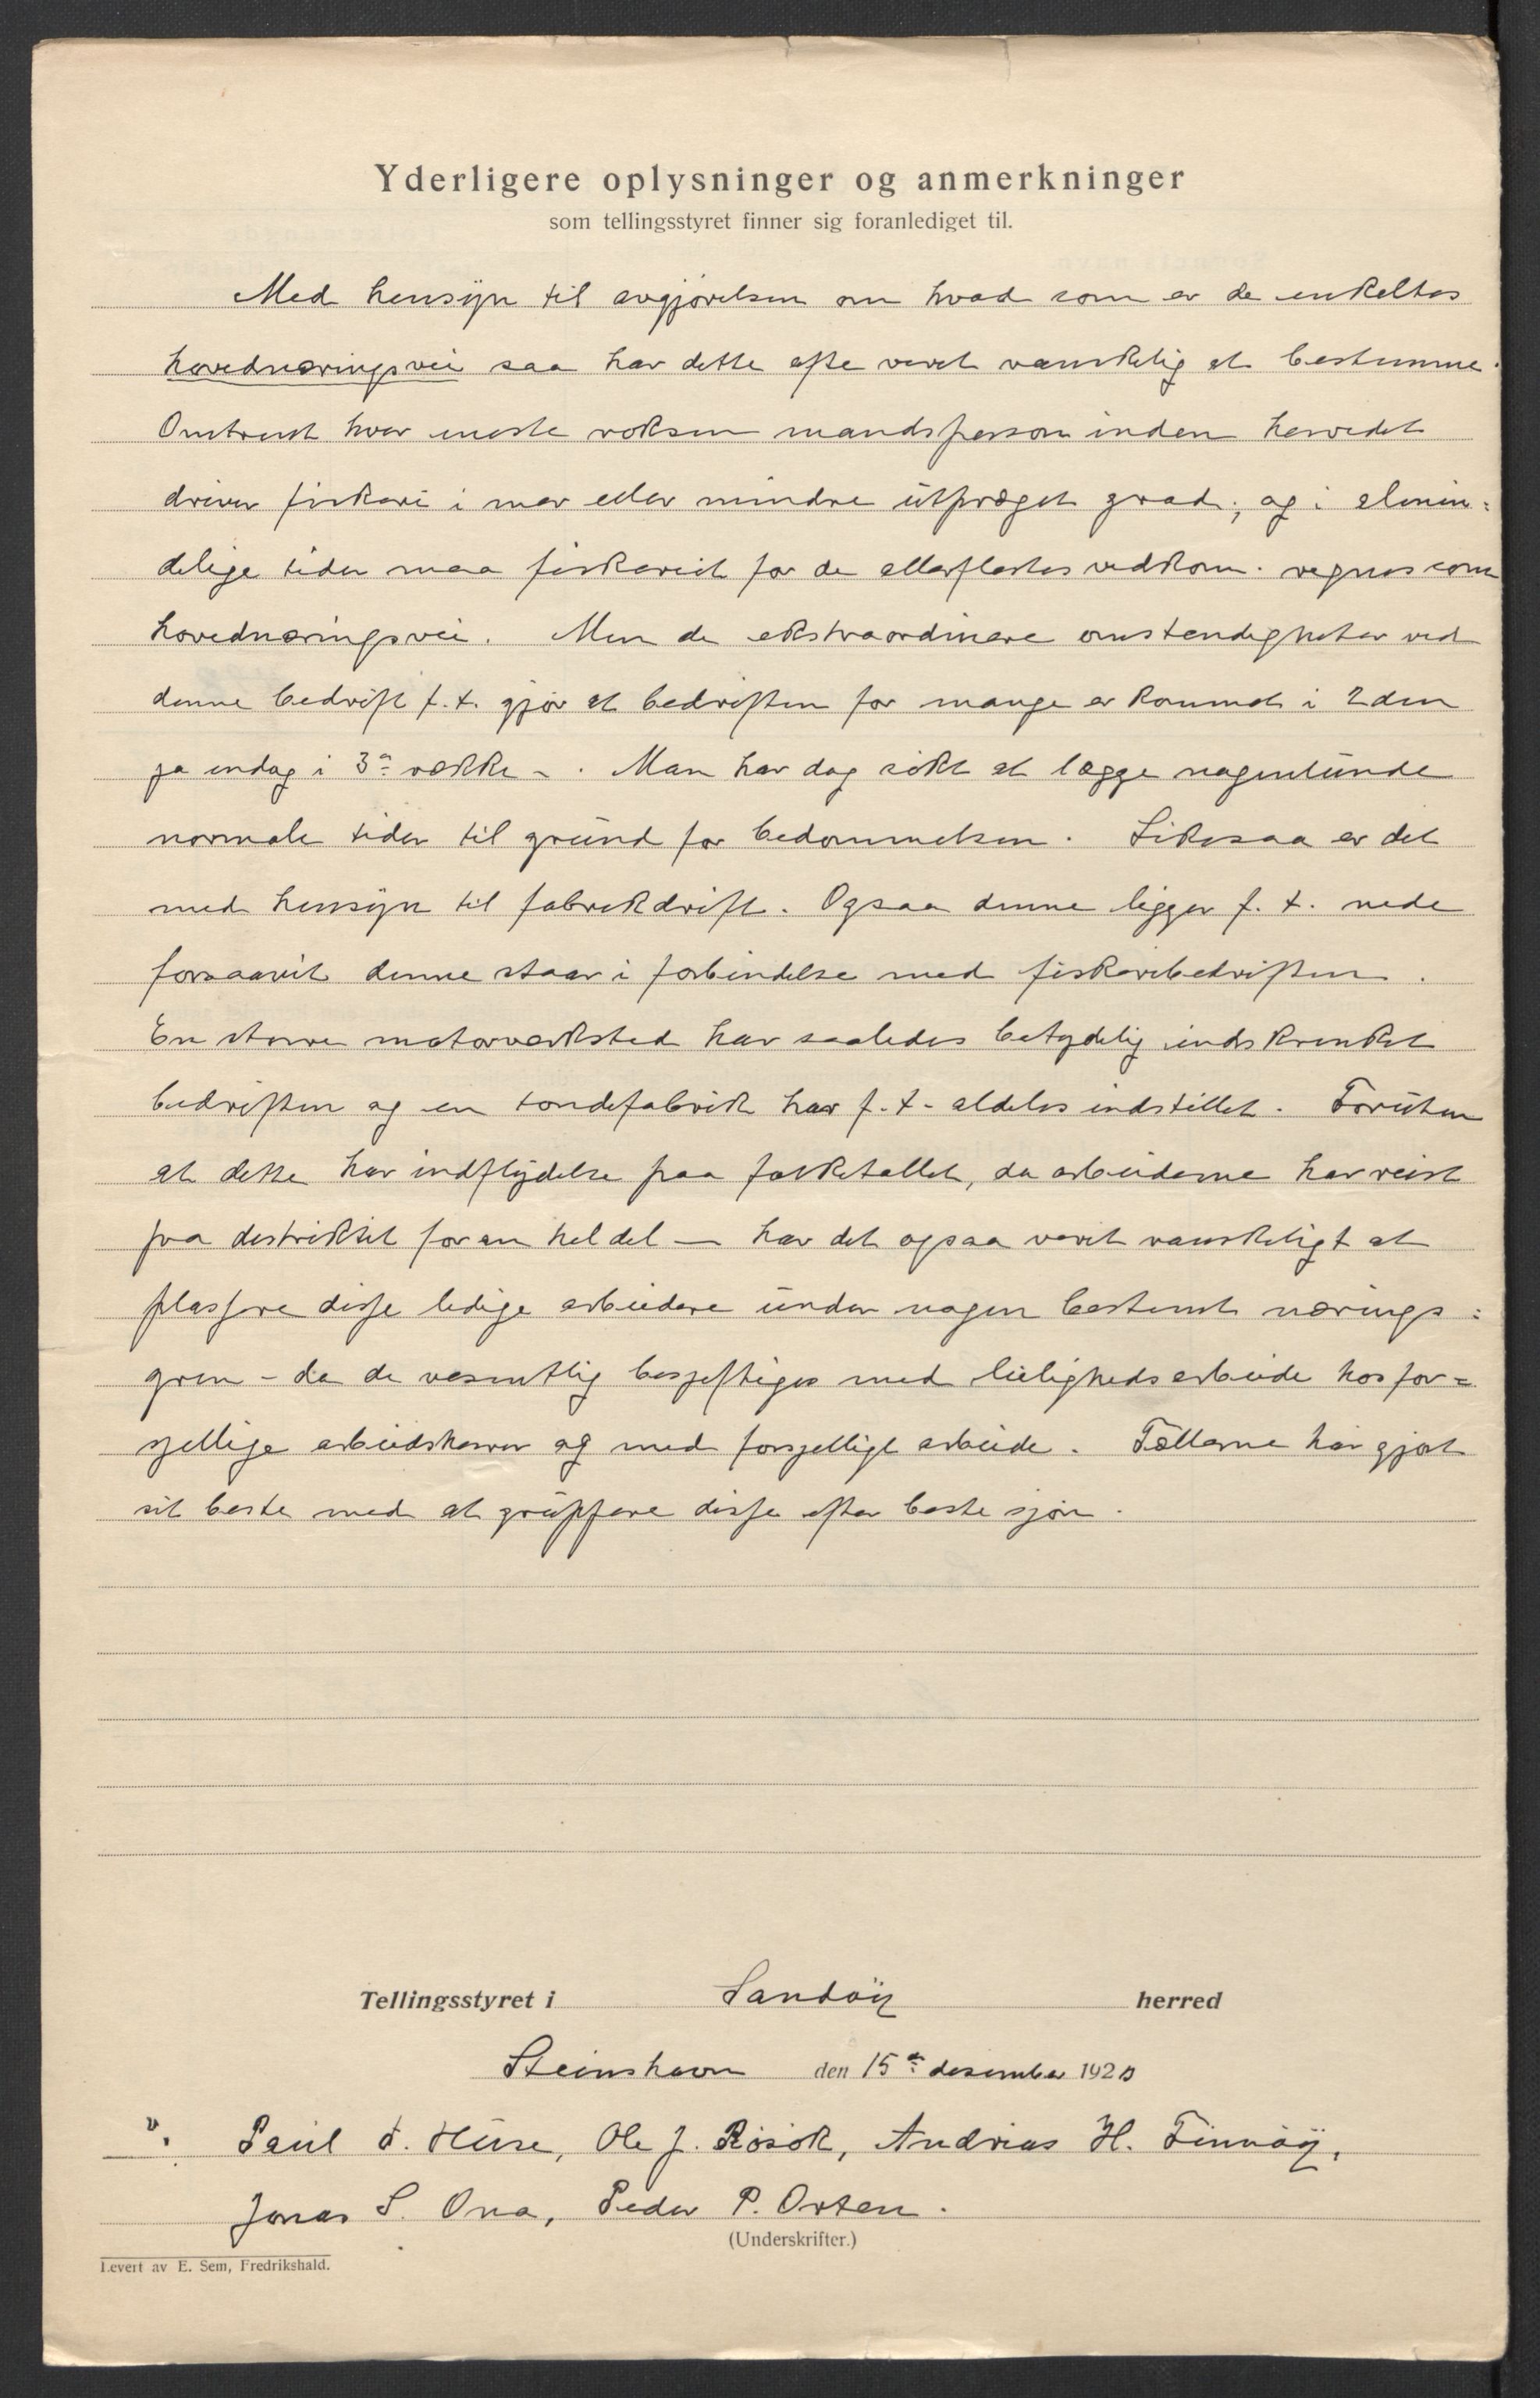 Yderligere oplysninger og anmerkninger
som tellingsstyret finner sig foranlediget til.
Med hensyn til avgjørelsen om hvad som er de enkeltes
hovednæringsvei saa har dette ofte været vanskelig at bestemme.
Omtrent hver eneste voksen mandsperson inden herredet
driver fiskeri i mer eller mindre utpræget grad; og i almin=
delige tider maa fiskeriet for de allerflestes vedkom. regnes som
hovednæringsvei. Men de ekstraordinære omstendigheter ved
denne bedrift f.t. gjør at bedriften for mange er kommet i 2den
ja endog i 3die række –. Man har dog søkt at lægge nogenlunde
normale tider til grund for bedømmelsen. Likesaa er det
med hensyn til fabrikdrift. Ogsaa denne ligger f.t. nede
forsaavit denne staar i forbindelse med fiskeribedriften.
En større motorværksted har saaledes betydelig indskrenket
bedriften og en tøndefabrik har f.t. aldeles indstillet. Foruten
at dette har indflydelse paa folketallet, da arbeiderne har reist
fra distriktet for en hel del — har det ogsaa været vanskeligt at
plassere disse ledige arbeidere under nogen bestemt nærings=
gren – da de væsentlig besjeftiges med leilighedsarbeide hos for=
sjellige arbeidsherrer og med forsjelligt arbeide. Tællerne har gjort
sit beste med at gruppere disse efter beste sjøn.
Tellingsstyret i Sandøy herred
Steinshavn den 15de desember 1920
Paul S. Huse, Ole J. Røsok, Andreas H. Finnøy,
Jonas S. Ona, Peder P. Orten.
(Underskrifter.)
Levert av E. Sem, Fredrikshald.